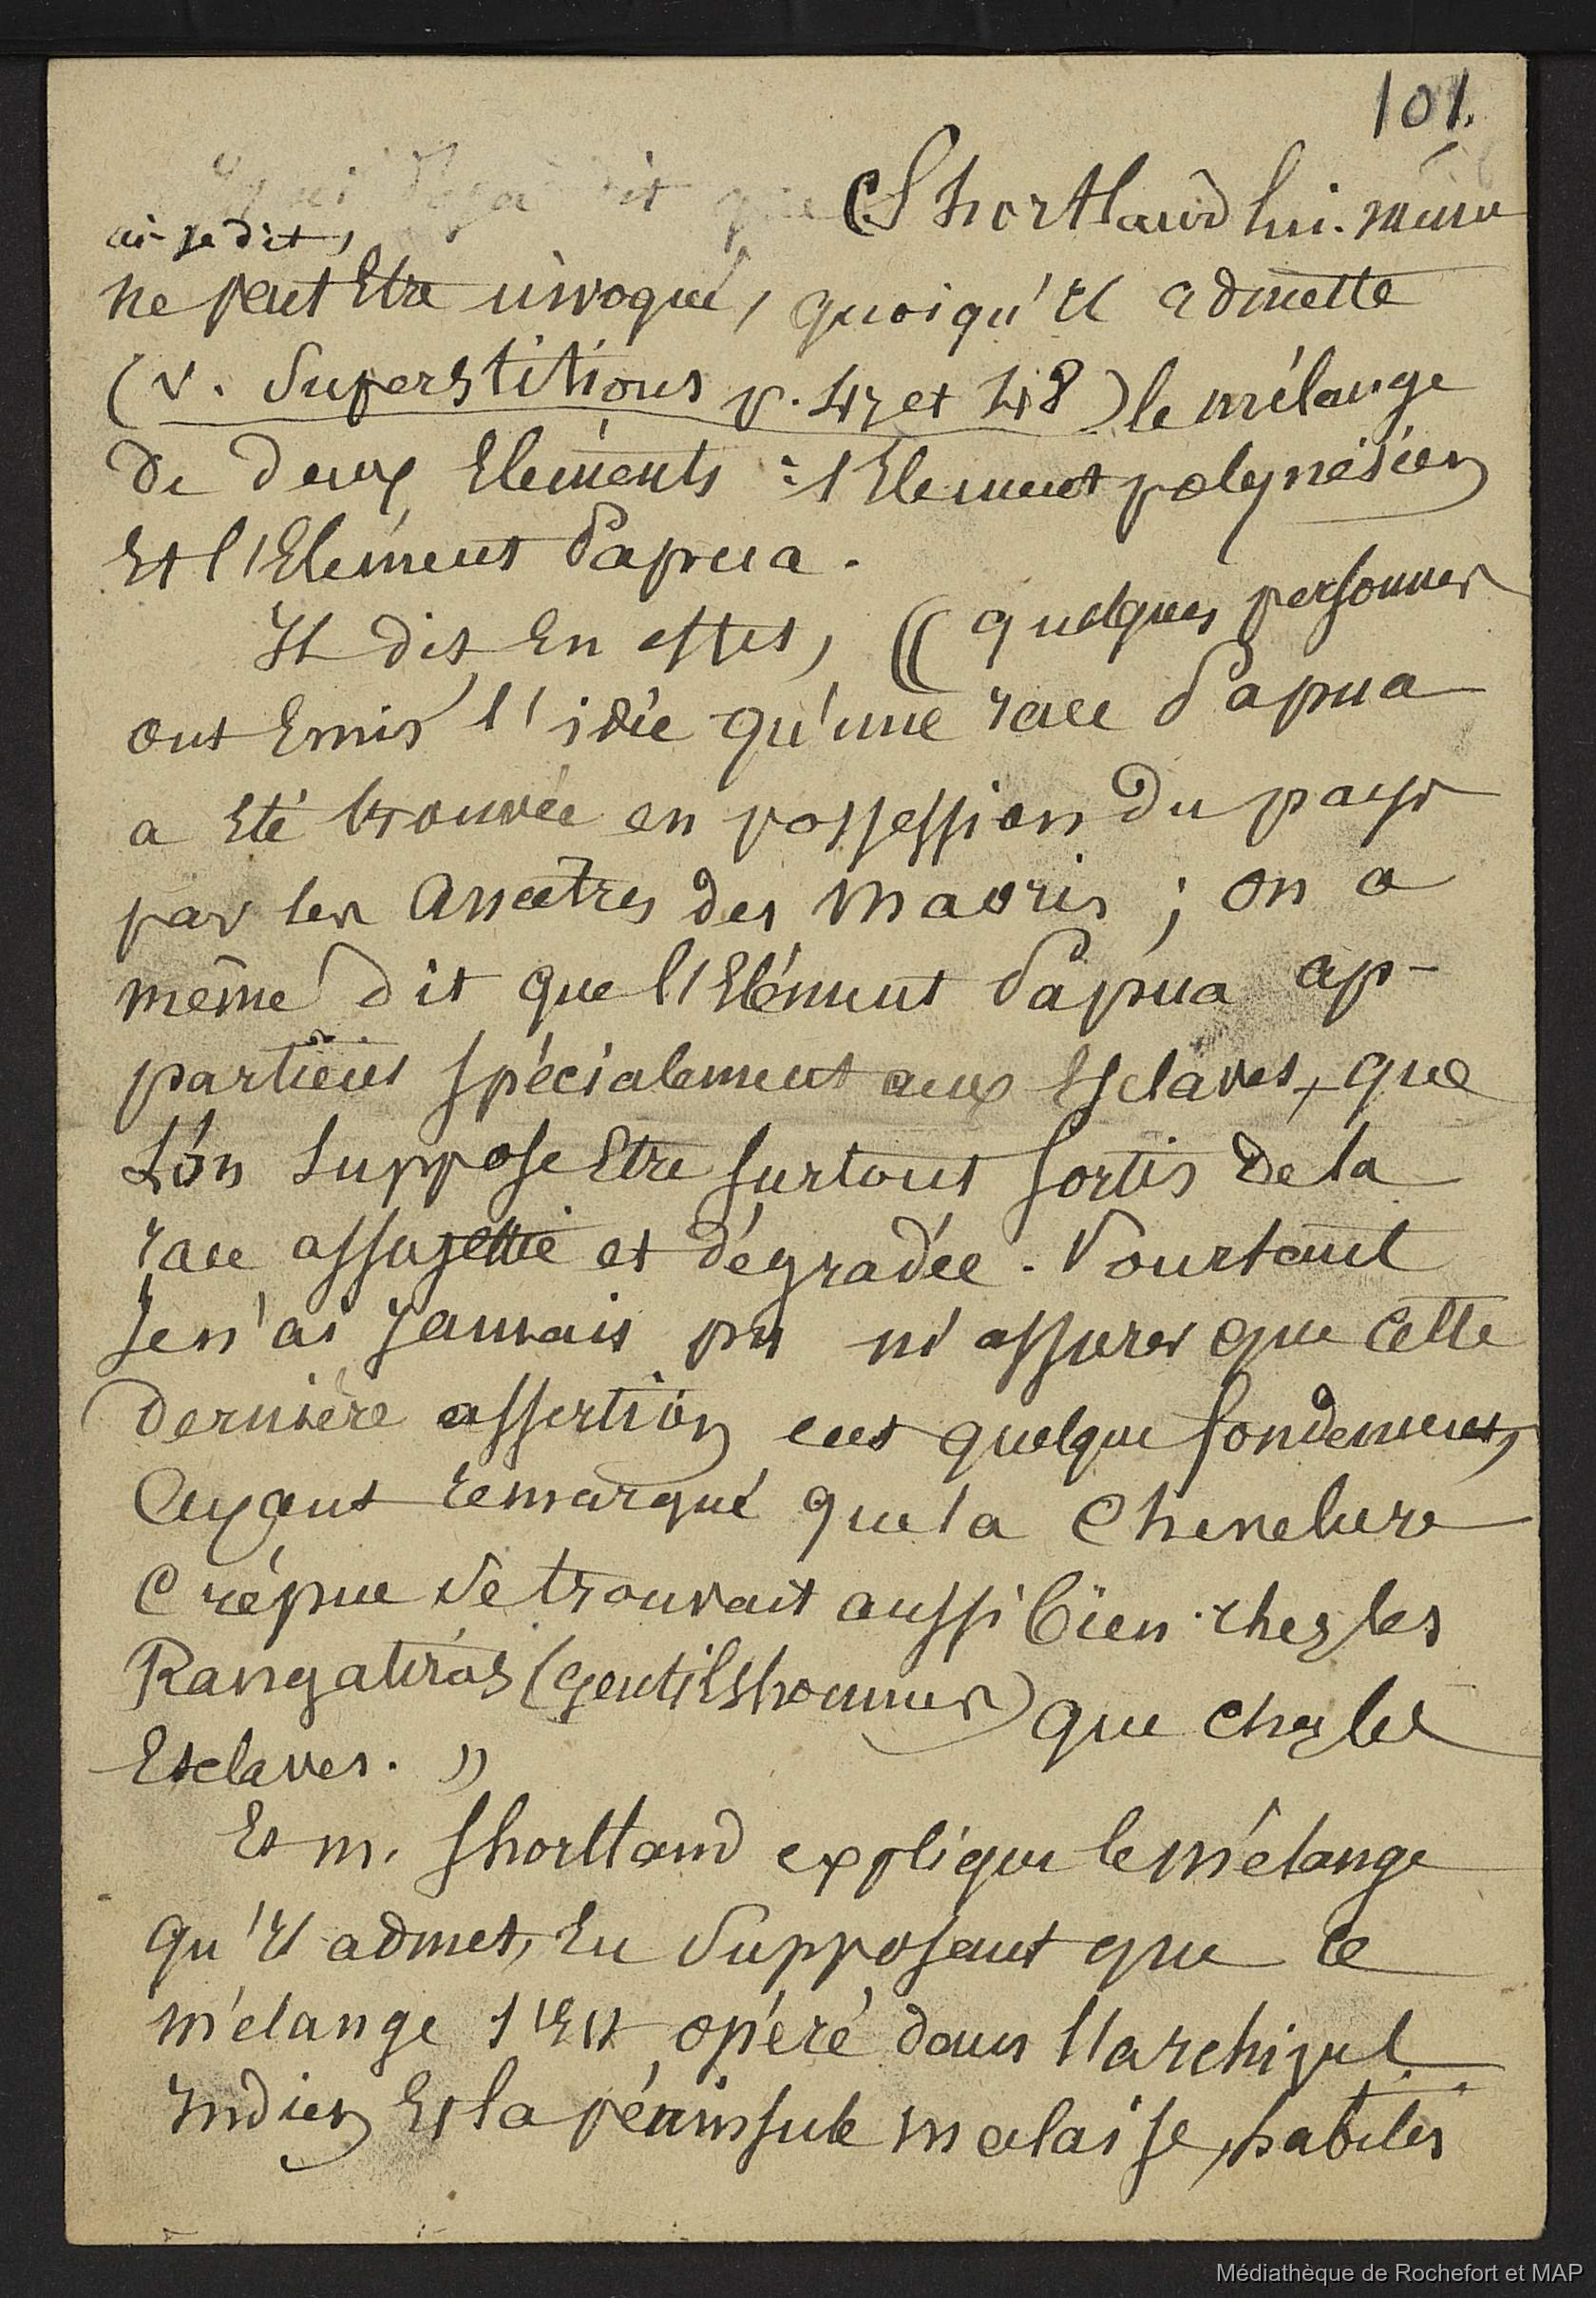 101.
Shortland lui-même
ai-je dit,
ne peut Etre invoqué, quoiqu'il admette
(v. Superstitions p. 47 et 48) le mélange
de deux Elements : l'Element polynésien
Et l'Elément Papua.
Il dit, En effet, (( quelques personnes
ont Emis l'idée qu'une race Papua
a Eté trouvée en possession du pays
par les Ancêtres des Maoris ; on a
même dit que l'Elément Papua ap-
partient spécialement aux Esclaves, que
l'on suppose Etre surtout sortis de la
race assujettie et dégradée. Pourtant
Je n'ai Jamais pu m'assurer que cette
dernière assertion eut quelque fondement,
Ayant remarqué que la Chevelure
Crépue se trouvait aussi bien chez les
Rangatiras (Gentilshommes) que chez les
Esclaves. »
Et M. Shortland explique le mélange
qu'il admet, En supposant que ce
mélange s'Est opéré dans l'archipel
Indien Et la péninsule malaise, habités
Médiathèque de Rochefort et MAP